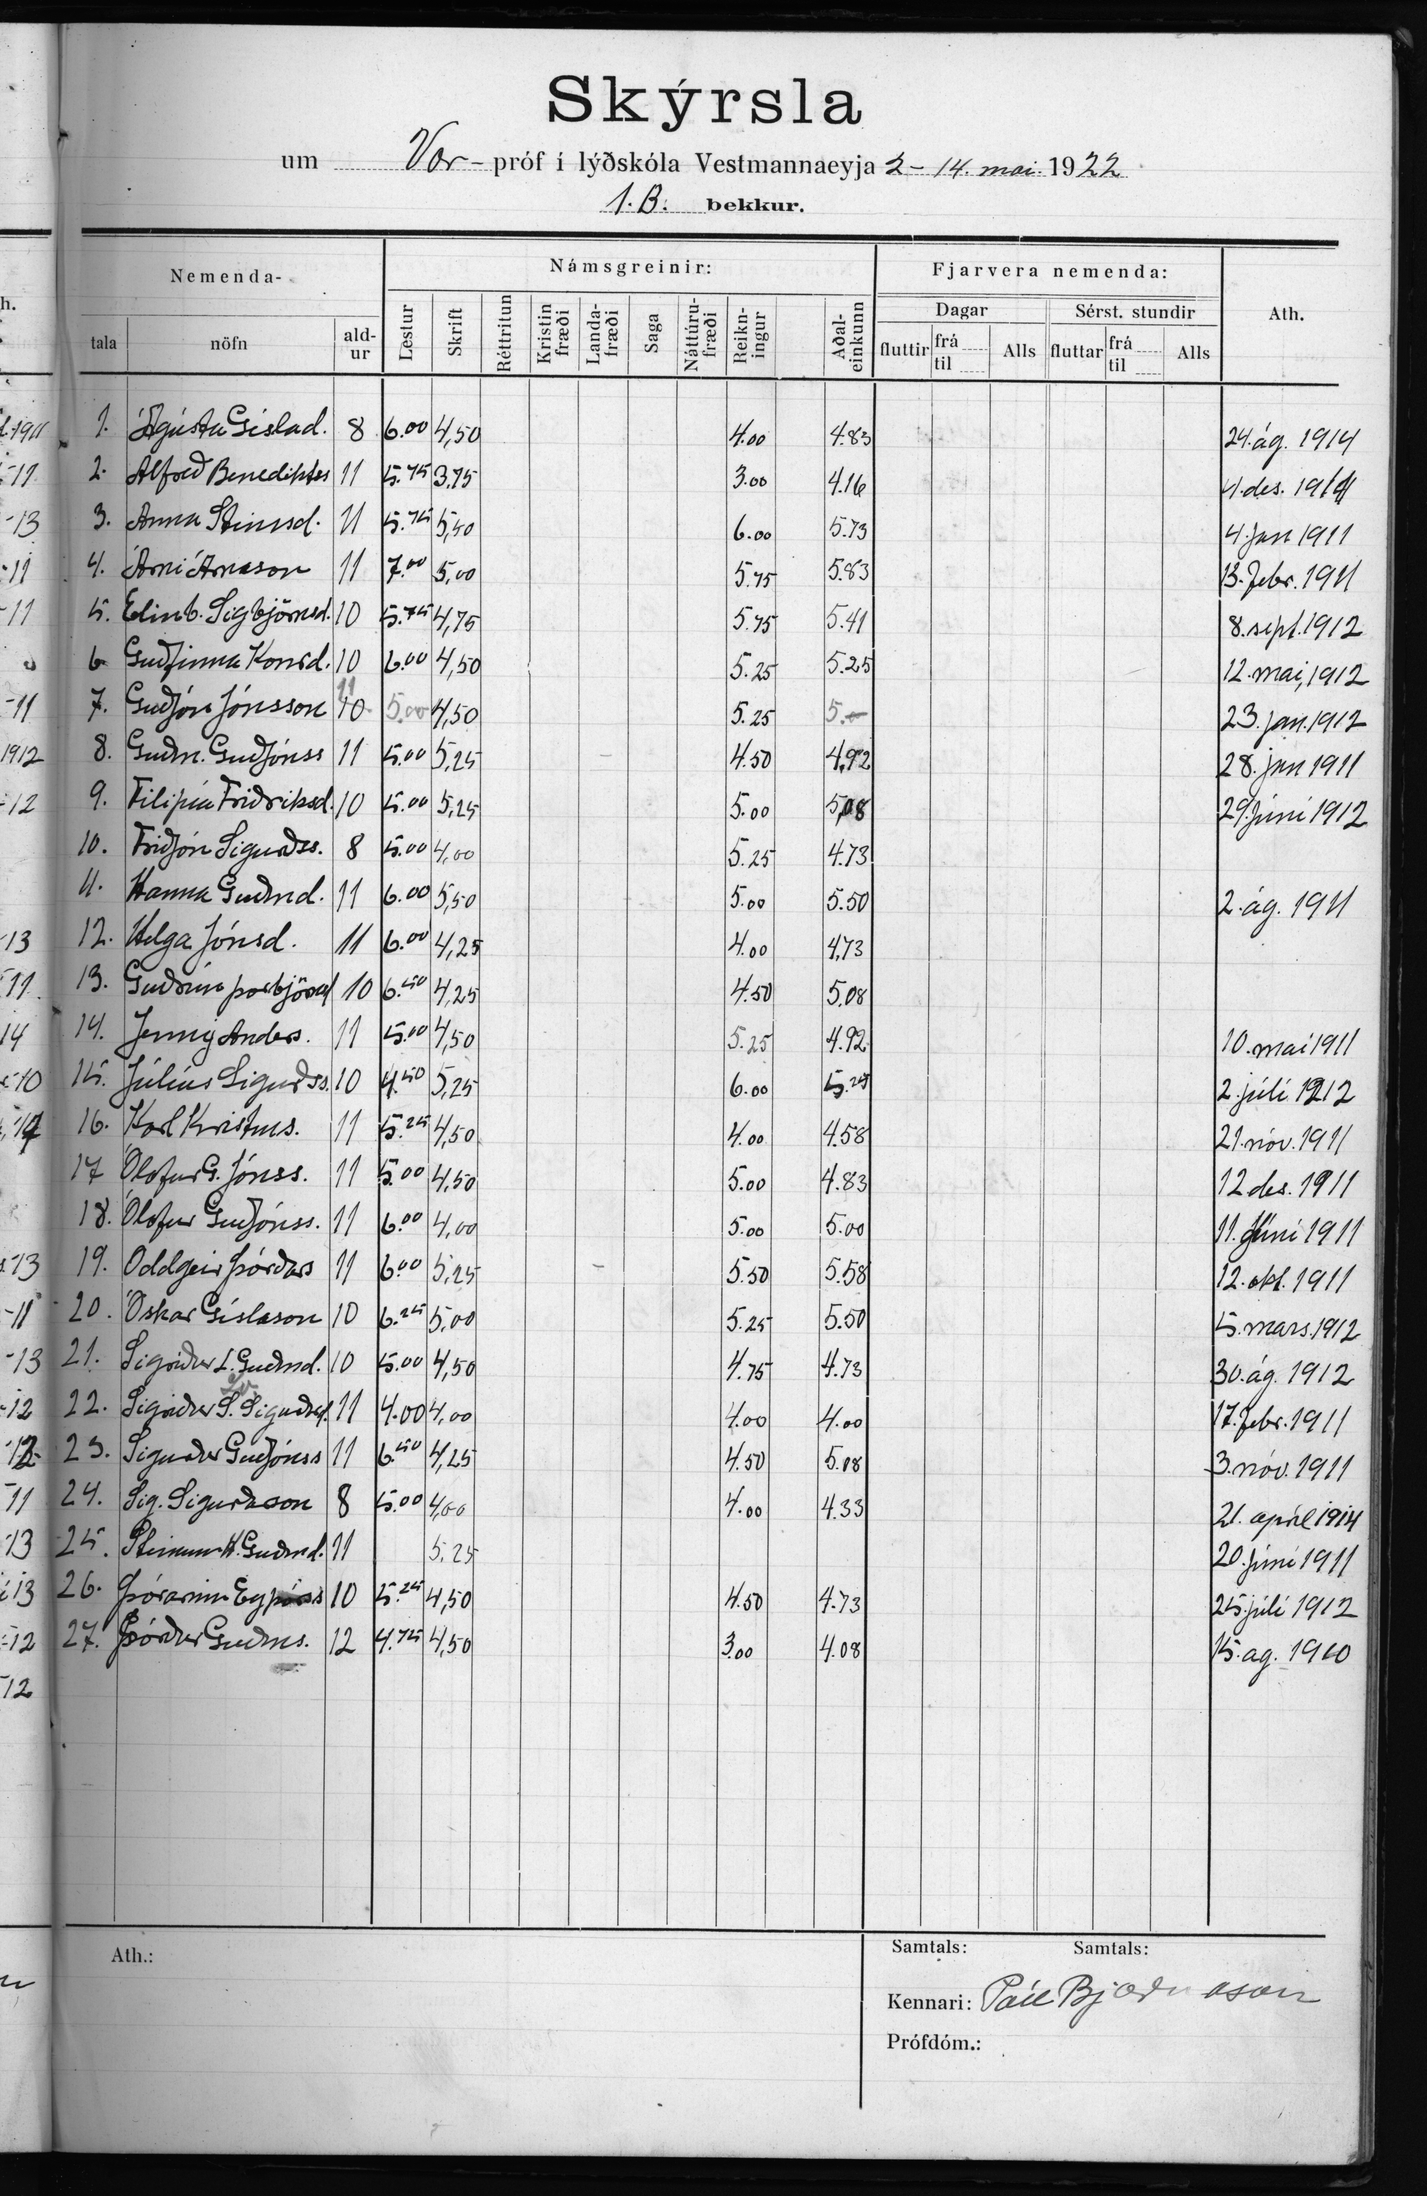 Skýrsla
um Vor- próf í lýðskóla Vestmannaeyja 2-14. mai. 1922
1.B. bekkur.
Nemenda- Námsgreinir: Fjarvera nemenda: Ath.
tala nöfn ald-ur Lestur Skrift Réttritun Kristin fræði Landa-fræði Saga Náttúru-fræði Reikn-ingur Aðal-einkunn Dagar Sérst. stundir
fluttir frá til Alls fluttar frá til Alls
1. Ágústa Gíslad. 8 6.00 4,50 4.00 4.83 24. ág. 1914
2. Alfreð Benedikts 11 5.75 3,75 3.00 4.16 4. des. 1911
3. Anna Steinsd. 11 5.75 5,50 6.00 5.73 4. jan 1911
4. Árni Árnason 11 7.00 5,00 5.75 5.83 13. febr. 1911
5. Elinb. Sigbjörnsd. 10 5.75 4,75 5.75 5.41 8. sept. 1912
6 Guðfinna Konrd. 10 6.00 4,50 5.25 5.25 12. mai, 1912
7. Guðjón Jónsson 10 11 5.00 4,50 5.25 5.- 23. jan. 1912
8. Guðm. Guðjónss 11 5.00 5,25 4.50 4,92 28. jan 1911
9. Filipía Friðriksd. 10 5.00 5,25 5.00 5,08 29. júní 1912
10. Friðjón Sigurðss. 8 5.00 4,00 5.25 4.73
11. Hanna Guðmd. 11 6.00 5,50 5.00 5.50 2. ág. 1911
12. Helga Jónsd. 11 6.00 4,25 4.00 4,73
13. Guðrún Þorbjörnd 10 6.50 4,25 4.50 5,08
14. Jenny Anders. 11 5.00 4,50 5.25 4.92 10. mai 1911
15. Júlíus Sigurðss. 10 4.50 5,25 6.00 5.25 2. júlí 1912
16. Karl Kristms. 11 5.25 4,50 4.00 4.58 21. nóv. 1911
17 Ólafur G. Jónss. 11 5.00 4,50 5.00 4.83 12 des. 1911
18. Ólafur Guðjónss. 11 6.00 4,00 5.00 5.00 11. Júní 1911
19. Oddgeir Þórðars 11 6.00 5,25 5.50 5.58 12. okt. 1911
20. Óskar Gíslason 10 6.25 5,00 5.25 5.50 5. mars. 1912
21. Sigríður L. Guðmd. 10 5.00 4,50 4.75 4.73 30. ág. 1912
22. Sigríður S. Sigurðd. 11 4.00 4,00 4.00 4.00 17. febr. 1911
23. Sigurður Guðjónss 11 6.50 4,25 4.50 5.08 3. nóv. 1911
24. Sig. Sigurðsson 8 5.00 4,00 4.00 4.33 21. apríl 1914
25. Steinunn H. Guðmd. 11 5,25 20. júní 1911
26. Þórarinn Eyþórss 10 5.25 4,50 4.50 4.73 25. júlí 1912
27. Þórður Guðms. 12 4.75 4,50 3.00 4.08 15. ag. 1910
Ath.: Samtals: Samtals:
Kennari: Páll Bjarnason
Prófdóm.: